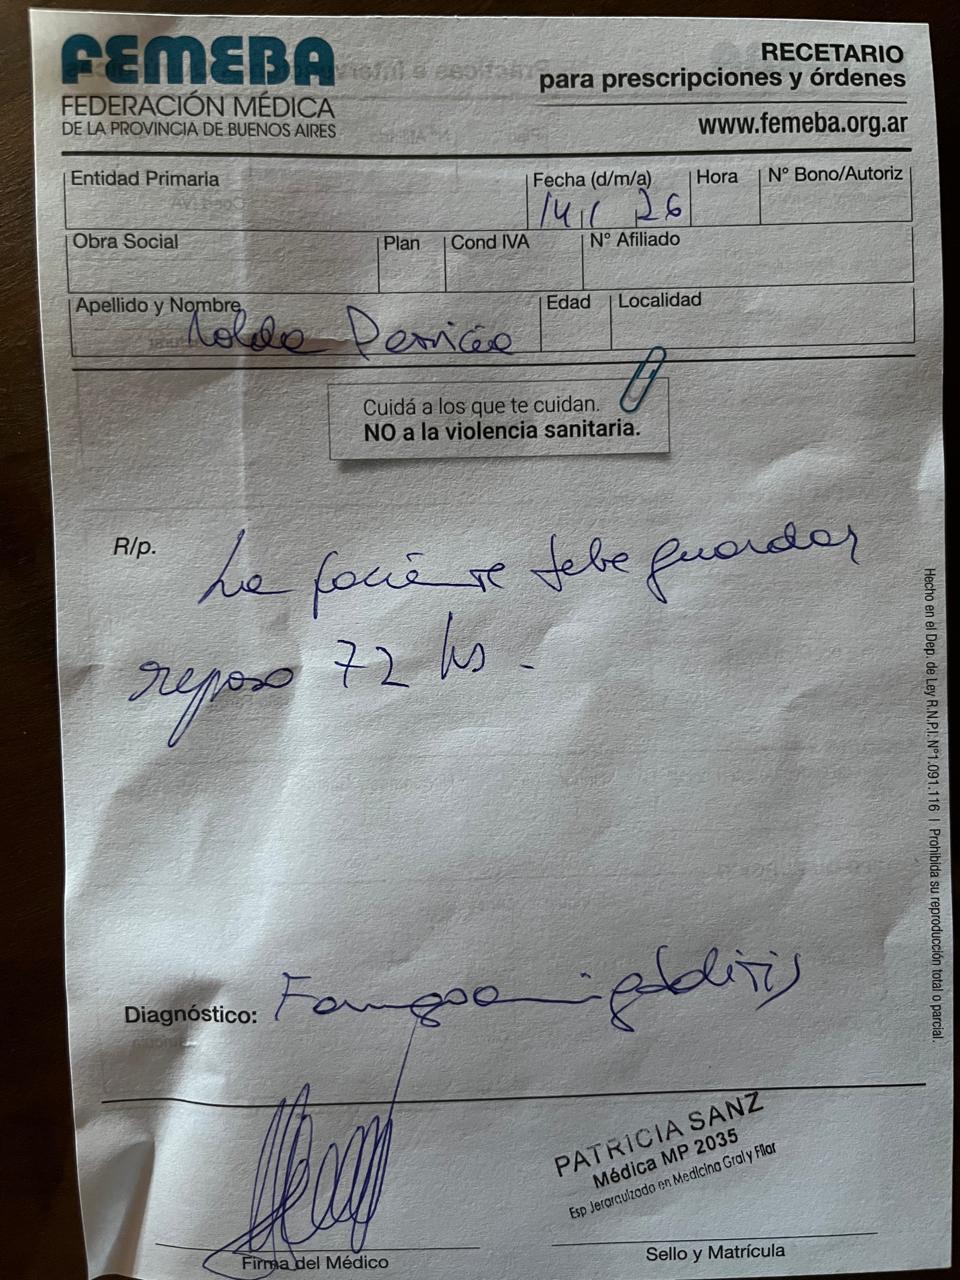 FEMEBA
FEDERACIÓN MÉDICA
DE LA PROVINCIA DE BUENOS AIRES
RECETARIO
para prescripciones y órdenes
www.femeba.org.ar
Entidad Primaria
Fecha (d/m/a)
14/1 26
Hora
N° Bono/Autoriz
Obra Social
Plan
Cond IVA
N° Afiliado
Apellido y Nombre
Edad
Localidad
Cuidá a los que te cuidan.
NO a la violencia sanitaria.
R/p.
La paciente debe guardar
reposo 72 hs.
Diagnóstico: Faringoamigdalitis
Firma del Médico
PATRICIA SANZ
Médica MP 2035
Esp Jerarquizado en Medicina Gral y Fliar
Sello y Matrícula
Hecho en el Dep. de Ley R.N.P.I. N°1.091.116 | Prohibida su reproducción total o parcial.